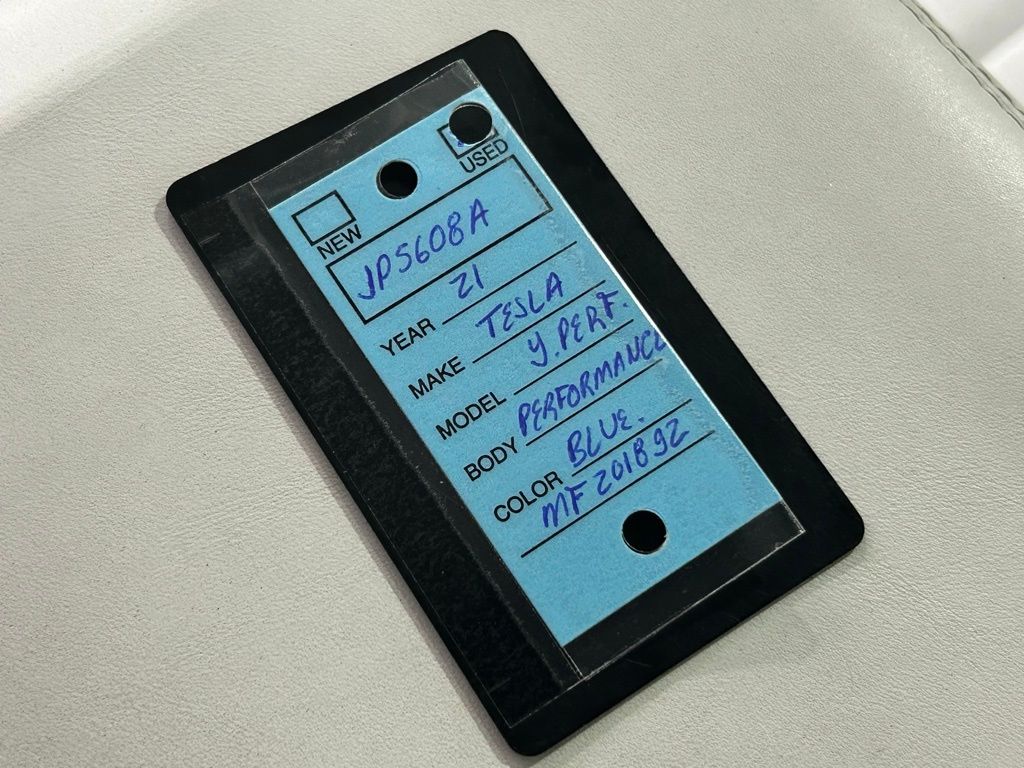 NEW USED
JP5608A
YEAR 21
MAKE TESLA
MODEL Y.PERF.
BODY PERFORMANCE
COLOR BLUE.
MF201892